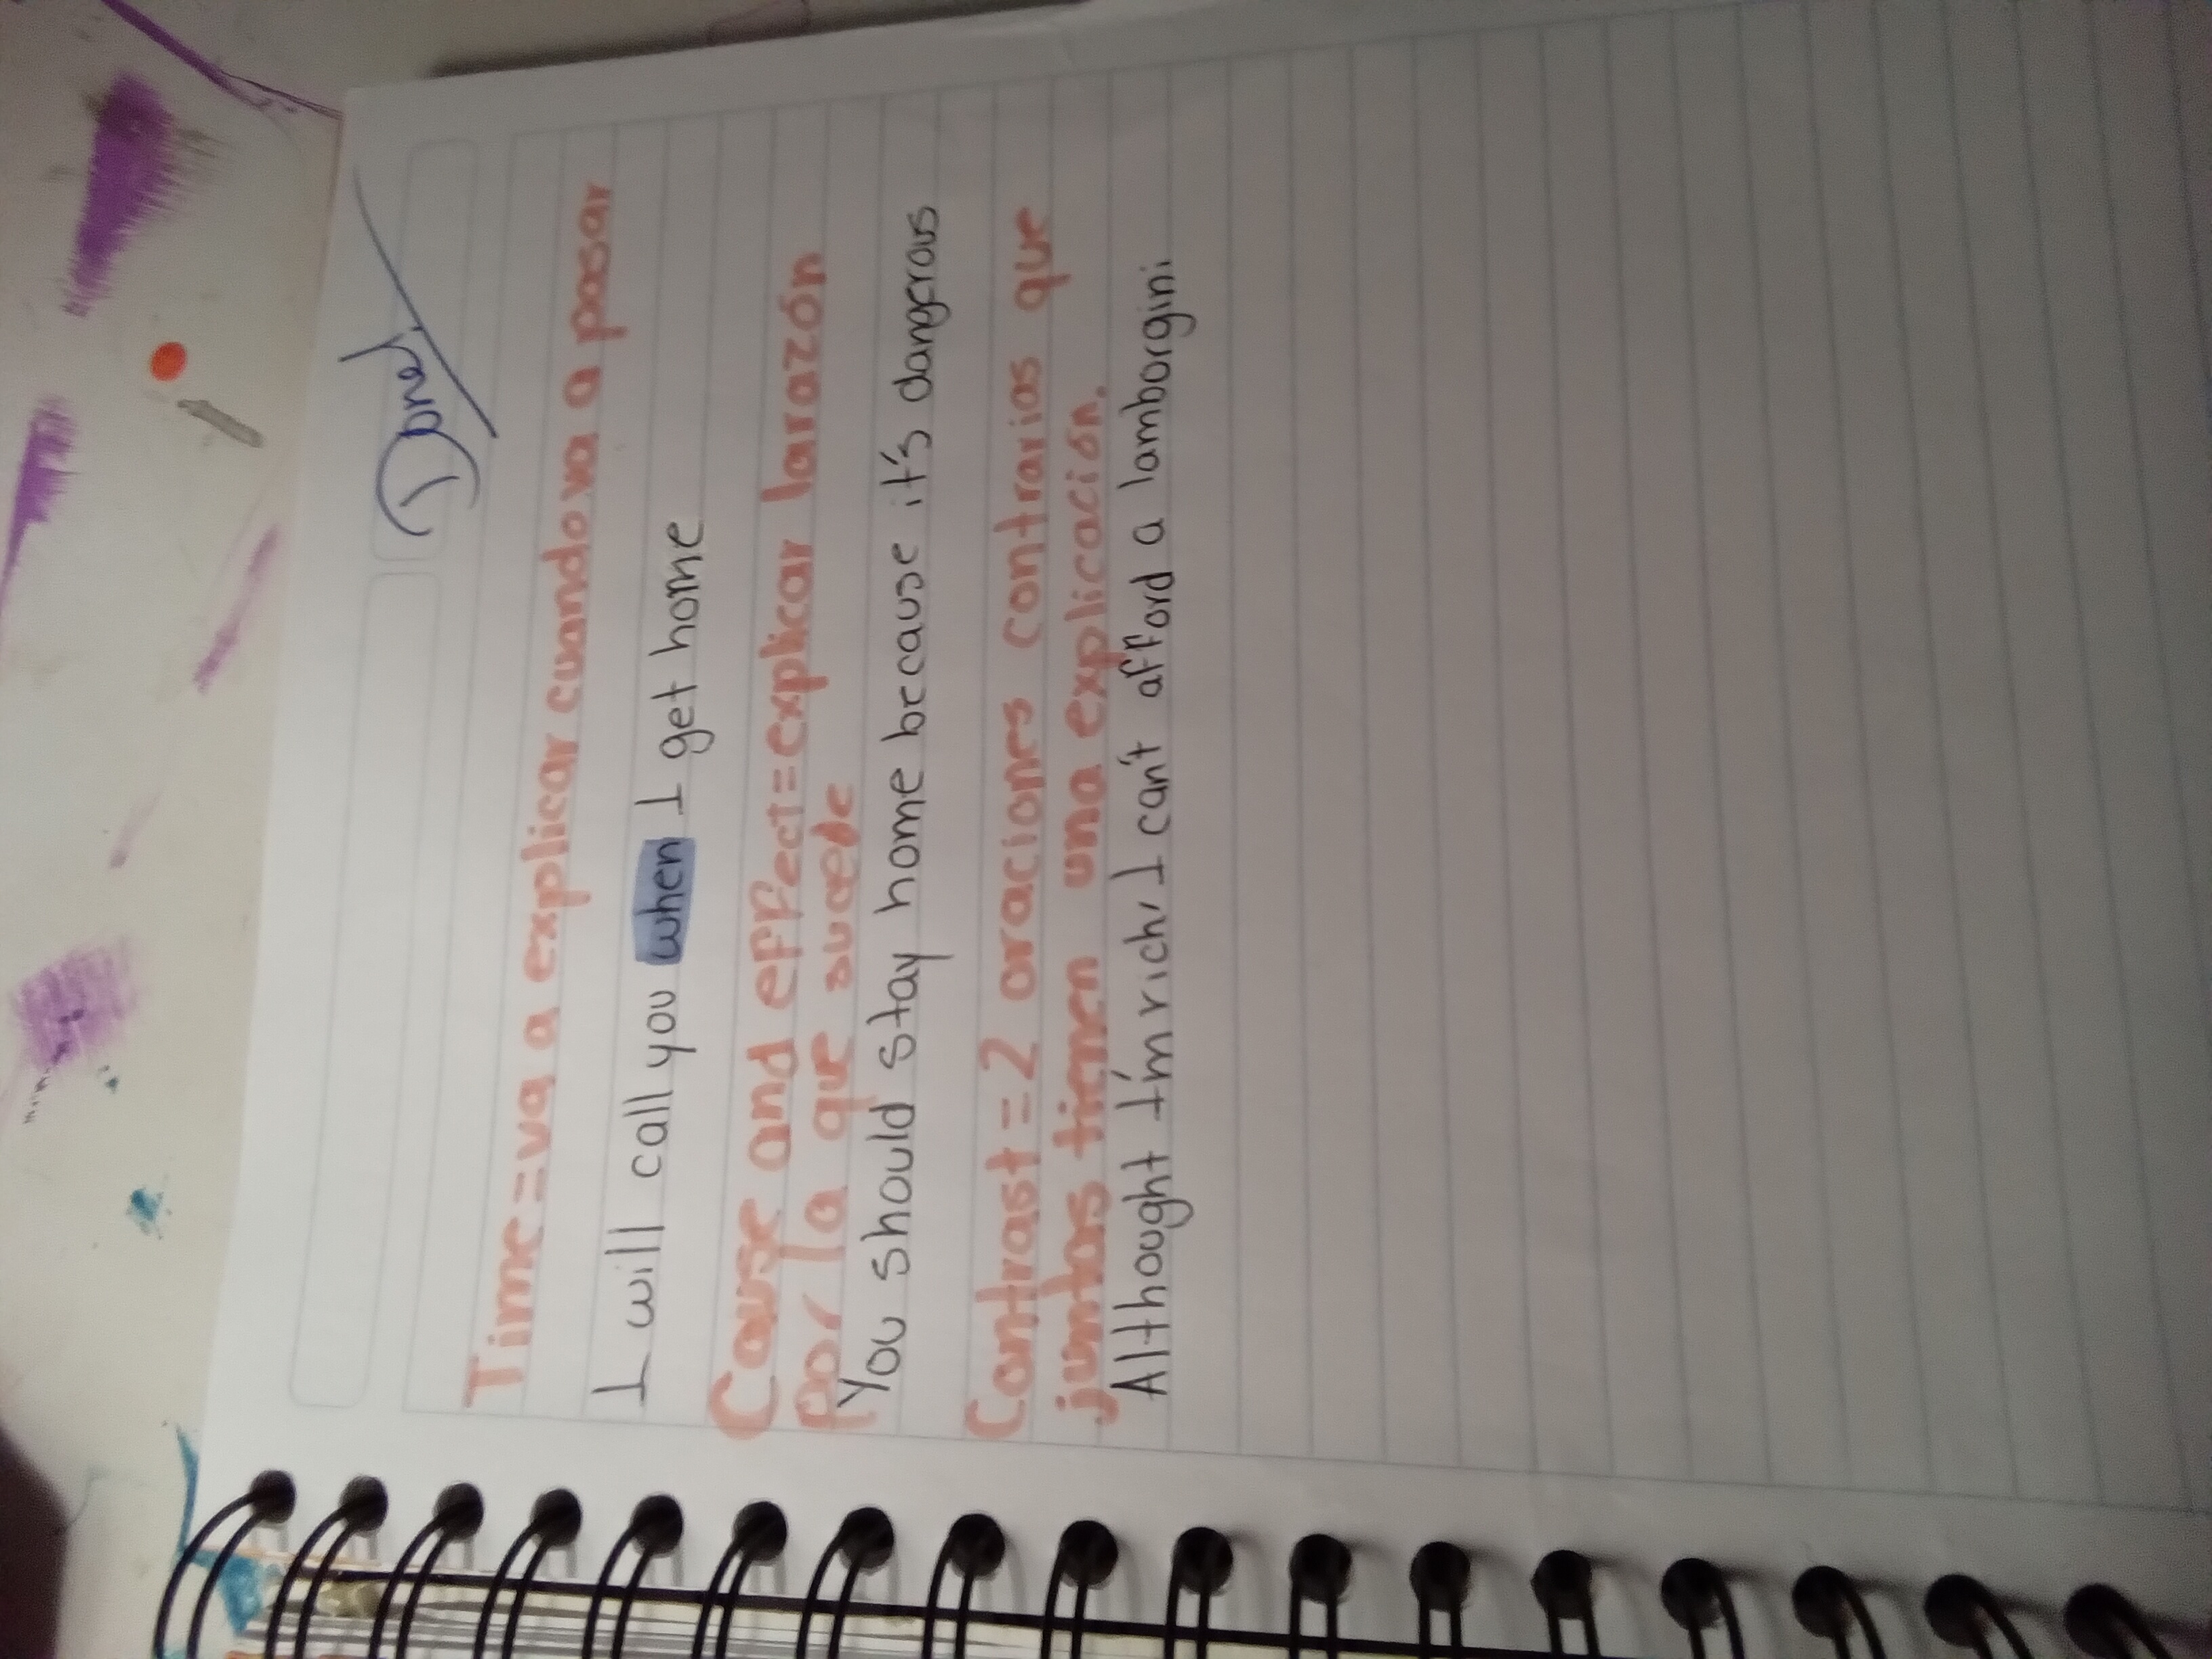 Time=va a explicar cuando va a pasar
I will call you when I get home
Cause and effect=explicar la razón
por la que sucede
You should stay home because it's dangerous
Contrast=2 oraciones contrarias que
juntas tienen una explicación.
Althought I'm rich, I can't afford a lamborgini